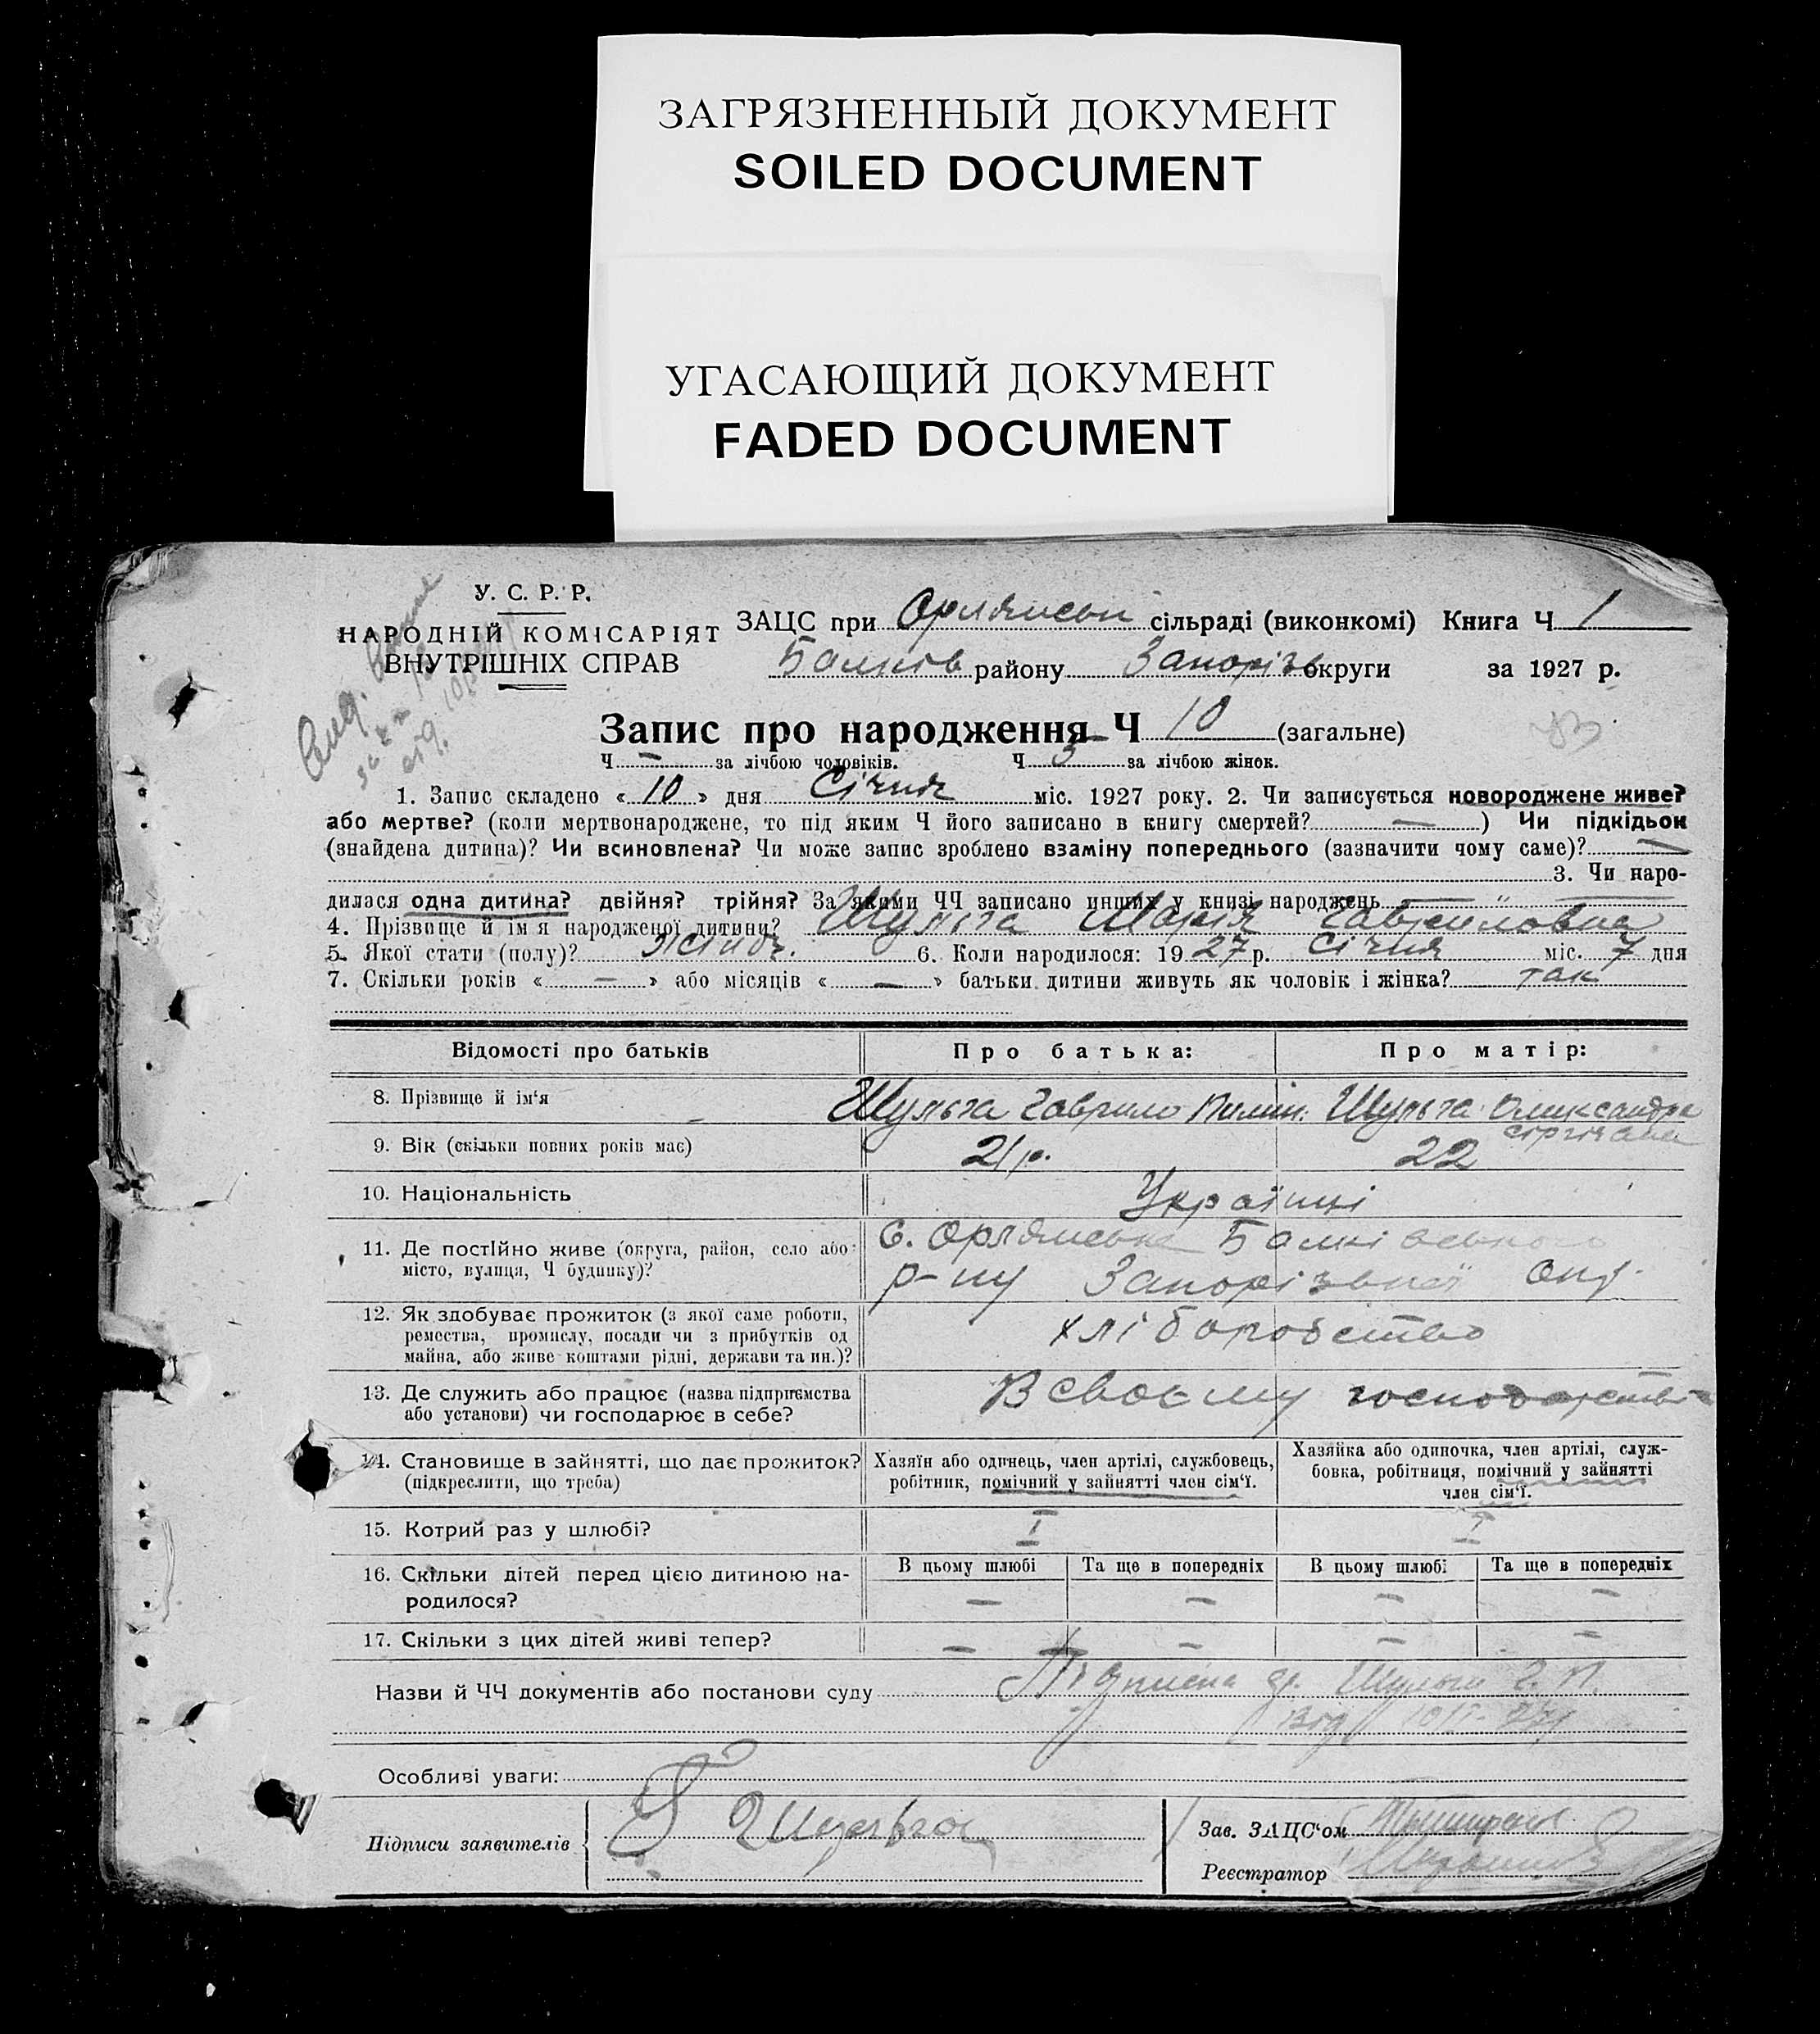 ЗАГРЯЗНЕННЫЙ ДОКУМЕНТ
SOILED DOCUMENT
УГАСАЮЩИЙ ДОКУМЕНТ
FADED DOCUMENT
У. С. Р. Р.
НАРОДНІЙ КОМІСАРІЯТ
ВНУТРІШНІХ СПРАВ
ЗАЦС при Орлянськ сільраді (виконкомі) Книга Ч 1
Балків району Запоріз округи за 1927 р.
Запис про народження Ч 10 (загальне)
Ч — за лічбою чоловіків. Ч 5 за лічбою жінок.
1. Запис складено « 10 » дня Січня міс. 1927 року. 2. Чи записується новороджене живе?
або мертве? (коли мертвонароджене, то під яким Ч його записано в книгу смертей? — ) Чи підкідьок
(знайдена дитина)? Чи всиновлена? Чи може запис зроблено взаміну попереднього (зазначити чому саме)? —
3. Чи наро-
дилася одна дитина? двійня? трійня? За якими ЧЧ записано инших у книзі народжень — " —
4. Прізвище й ім'я народженої дитини? Шульга Марія Гавриловна
5. Якої стати (полу)? жіноч. 6. Коли народилося: 1927 р. Січня міс. 7 дня
7. Скільки років « — » або місяців « — » батьки дитини живуть як чоловік і жінка? так
Відомості про батьків Про батька: Про матір:
8. Прізвище й ім'я Шульга Гаврило Пилип. Шульга Оликсандра
9. Вік (скільки повних років має) 21 р. 22
10. Національність Українці
11. Де постійно живе (округа, район, село або С. Орлянськ Балківського
місто, вулиця, Ч будинку)? р-ну Запорізької окр.
12. Як здобуває прожиток (з якої саме роботи,
ремества, промислу, посади чи з прибутків од хліборобство
майна, або живе коштами рідні, держави та ин.)?
13. Де служить або працює (назва підприємства В своєму господарстві
або установи) чи господарює в себе?
14. Становище в зайнятті, що дає прожиток? Хазяїн або одинець, член артілі, службовець, Хазяйка або одиночка, член артілі, служ-
(підкреслити, що треба) робітник, помічний у зайнятті член сім'ї. бовка, робітниця, помічний у зайнятті
член сім'ї.
15. Котрий раз у шлюбі? I I
16. Скільки дітей перед цією дитиною на- В цьому шлюбі Та ще в попередніх В цьому шлюбі Та ще в попередніх
родилося? — — — —
17. Скільки з цих дітей живі тепер? — — — —
Назви й ЧЧ документів або постанови суду Підписка гр. Шульги Г. П.
від 10/I-27р
Особливі уваги:
Підписи заявителів Г Шульга
Зав. ЗАЦС'ом
Реєстратор